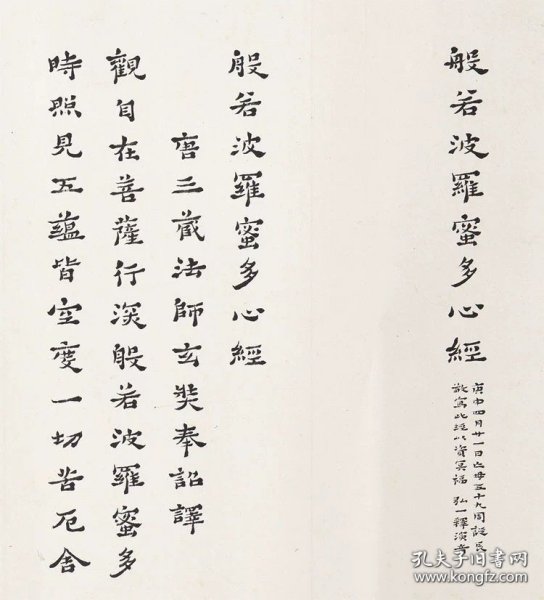 般若波羅蜜多心經
庚申四月廿一日亡母五十九周誕辰
敬寫此經以資冥福 弘一釋演音
般若波羅蜜多心經
唐三藏法師玄奘奉詔譯
觀自在菩薩行深般若波羅蜜多
時照見五蘊皆空度一切苦厄舍
孔夫子旧书网
www.kongfz.com